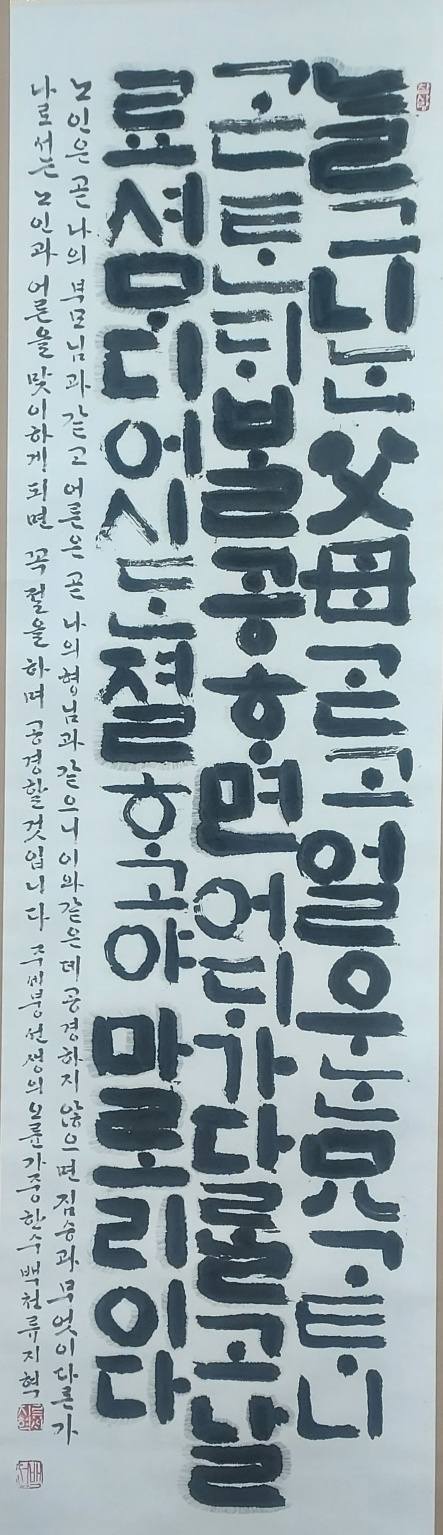 늘그니ᄂᆞᆫ父母ᄀᆞᆮ고얼우ᄂᆞᆫ兄ᄀᆞᄐᆞ니
ᄀᆞᆮᄐᆞᆫᄃᆡ불공ᄒᆞ면어ᄃᆡ가다ᄅᆞᆯ고날
료셔ᄆᆞ디어시ᄃᆞᆫ졀ᄒᆞ고야마로리이다
노인은 곧 나의 부모님과 같고 어른은 곧 나의 형님과 같으니 이와같은데 공경하지 않으면 짐승과 무엇이 다른가
나로서는 노인과 어른을 맞이하게되면 꼭 절을 하며 공경할것입니다 주세붕선생의 오륜가중한수 백천 류지혁